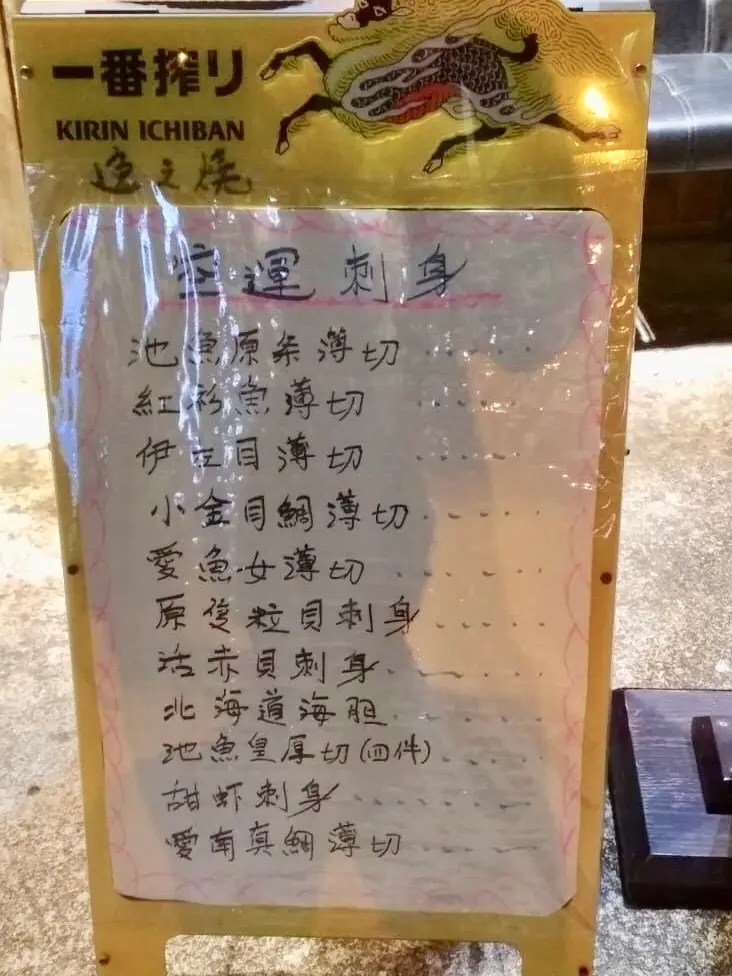 一番搾り
KIRIN ICHIBAN
之燒
空運刺身
池魚原条薄切......
紅衫魚薄切.....
伊左目薄切......
小金目鯛薄切......
愛魚女薄切......
原隻粒貝刺身......
活赤貝刺身......
北海道海胆......
池魚皇厚切(四件)......
甜虾刺身......
愛南真鯛薄切......